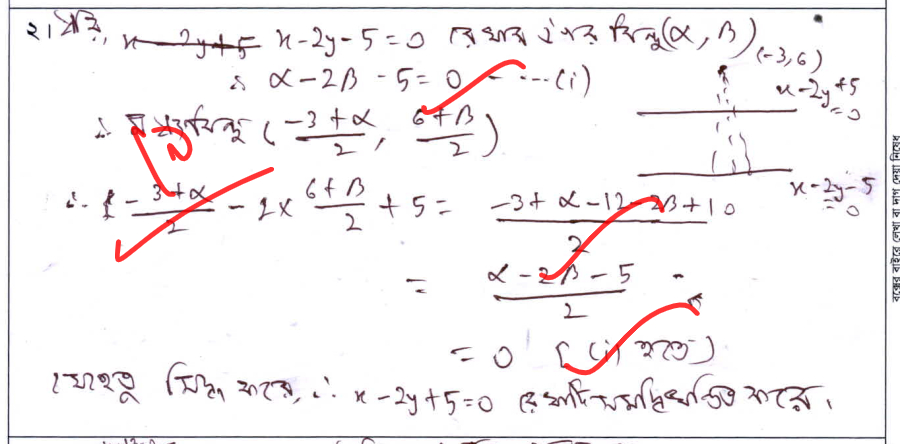 ২। ধরি, x-2y+5 x-2y-5=0 রেখার উপর বিন্দু (α, β)
(-3,6)
∴ α-2β-5=0 ----(i)
x-2y+5=0
∴ মধ্যবিন্দু (\frac{-3+α}{2}, \frac{6+β}{2})
x-2y-5=0
∴ \frac{-3+α}{2} - 2× \frac{6+β}{2} + 5 = \frac{-3+α-12-2β+10}{2}
= \frac{α-2β-5}{2}
= 0 [(i) হতে]
যেহেতু সিদ্ধ করে, ∴ x-2y+5=0 রেখাটি সমদ্বিখণ্ডিত করে।
বক্সের বাইরে লেখা বা দাগ দেয়া নিষেধ